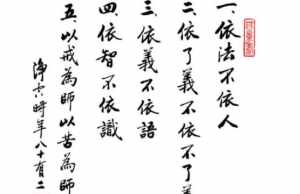 一、依法不依人
二、依了義不依不了義
三、依義不依語
四、依智不依識
五、以戒為師以苦為師
淨空時年八十有二